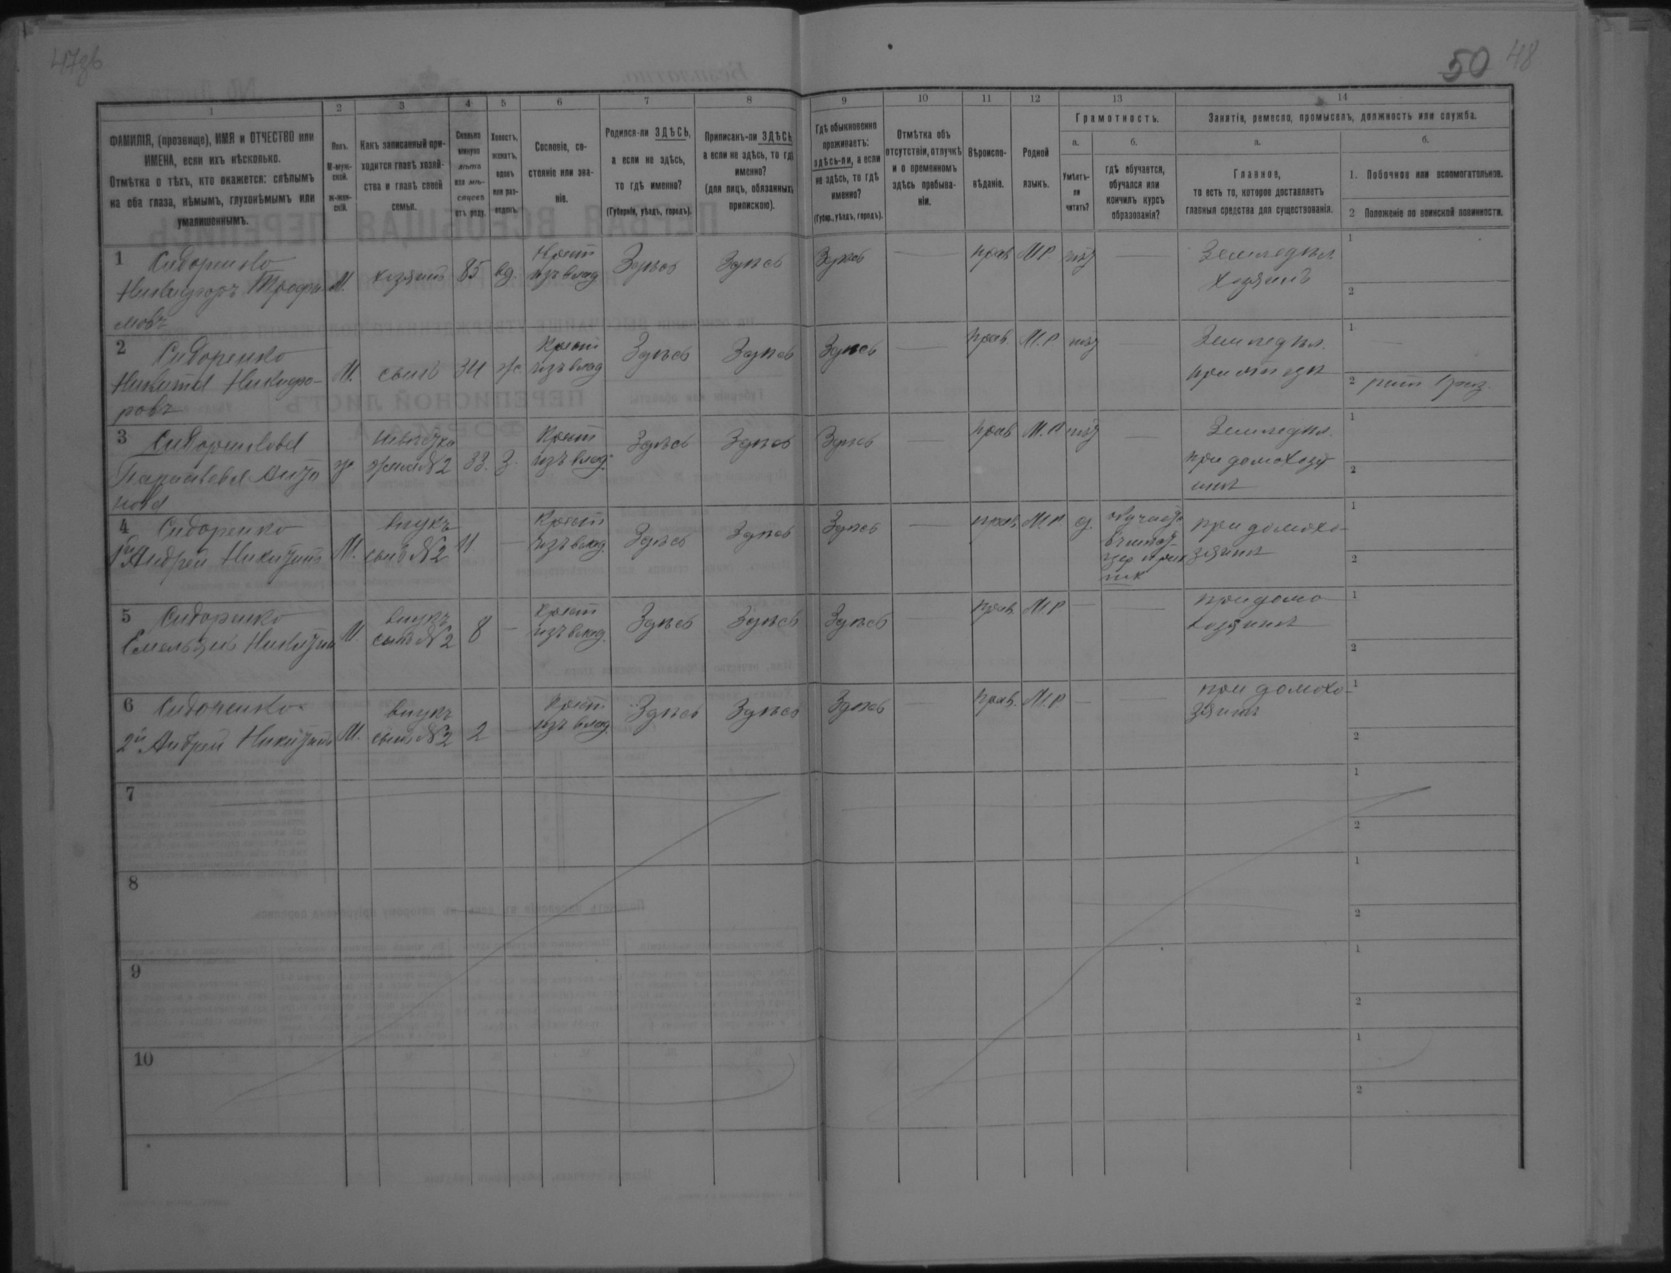 47об
50 48
1 2 3 4 5 6 7 8 9 10 11 12 13 14
ФАМИЛІЯ, (прозвище), ИМЯ и ОТЧЕСТВО или
ИМЕНА, если ихъ нѣсколько.
Отмѣтка о тѣхъ, кто окажется: слѣпымъ
на оба глаза, нѣмымъ, глухонѣмымъ или
умалишеннымъ.
Полъ.
М-муж-
ской.
ж-жен-
скій.
Какъ записанный при-
ходится главѣ хозяй-
ства и главѣ своей
семьи.
Сколько
минуло
лѣтъ
или мѣ-
сяцевъ
отъ роду.
Холостъ,
женатъ,
вдовъ
или раз-
веденъ.
Сословіе, со-
стояніе или зва-
ніе.
Родился-ли ЗДѢСЬ,
а если не здѣсь,
то гдѣ именно?
(Губернія, уѣздъ, городъ).
Приписанъ-ли ЗДѢСЬ,
а если не здѣсь, то гдѣ
именно?
(для лицъ, обязанныхъ
припискою).
Гдѣ обыкновенно
проживаетъ:
здѣсь-ли, а если
не здѣсь, то гдѣ
именно?
(Губер., уѣздъ, городъ).
Отмѣтка объ
отсутствіи, отлучкѣ
и о временномъ
здѣсь пребыва-
ніи.
Вѣроиспо-
вѣданіе.
Родной
языкъ.
Грамотность.
а.
Умѣетъ-
ли
читать?
б.
Гдѣ обучается,
обучался или
кончилъ курсъ
образованія?
Занятія, ремесло, промыселъ, должность или служба.
а.
Главное,
то есть то, которое доставляетъ
главныя средства для существованія.
б.
1. Побочное или вспомогательное.
2 Положеніе по воинской повинности.
1 Сидоренко
Никифоръ Трофи-
мовъ
М. хозяинъ 85 вд. Крест
изъ влад. Здѣсь Здѣсь Здѣсь — прав. М.Р нѣт — Земледѣл
Хозяинъ 1
2
2 Сидоренко
Никита Никифо-
ровъ
М. сынъ 34 ж Крест
изъ влад Здѣсь Здѣсь Здѣсь — прав М.Р нѣт — Земледѣл.
при отцѣ 1 —
2
3 Сидоренкова
ж жена №2 33. З. Крест
изъ влад. Здѣсь Здѣсь Здѣсь — прав М.Р нѣт — Земледѣл.
при домохозя
инѣ 1
2
4 Сидоренко
1й Андрей Никитинъ
М. внукъ
сынъ №2 11 — Крест
изъ влад. Здѣсь Здѣсь Здѣсь — прав. М.Р
при домохо-
зяинѣ 1
2
5 Сидоренко
Емельянъ Никитинъ
М внукъ
сынъ №2 8 — Крест
изъ влад. Здѣсь Здѣсь Здѣсь — прав М.Р — — при домо
хозяинѣ 1
2
6 Сидоренко
2й Андрей Никитинъ
М. внукъ
сынъ №2 2 — Крест
изъ влад. Здѣсь Здѣсь Здѣсь — прав. М.Р — — при домохо-
зяинѣ 1
2
7 1
2
8 1
2
9 1
2
10 1
2